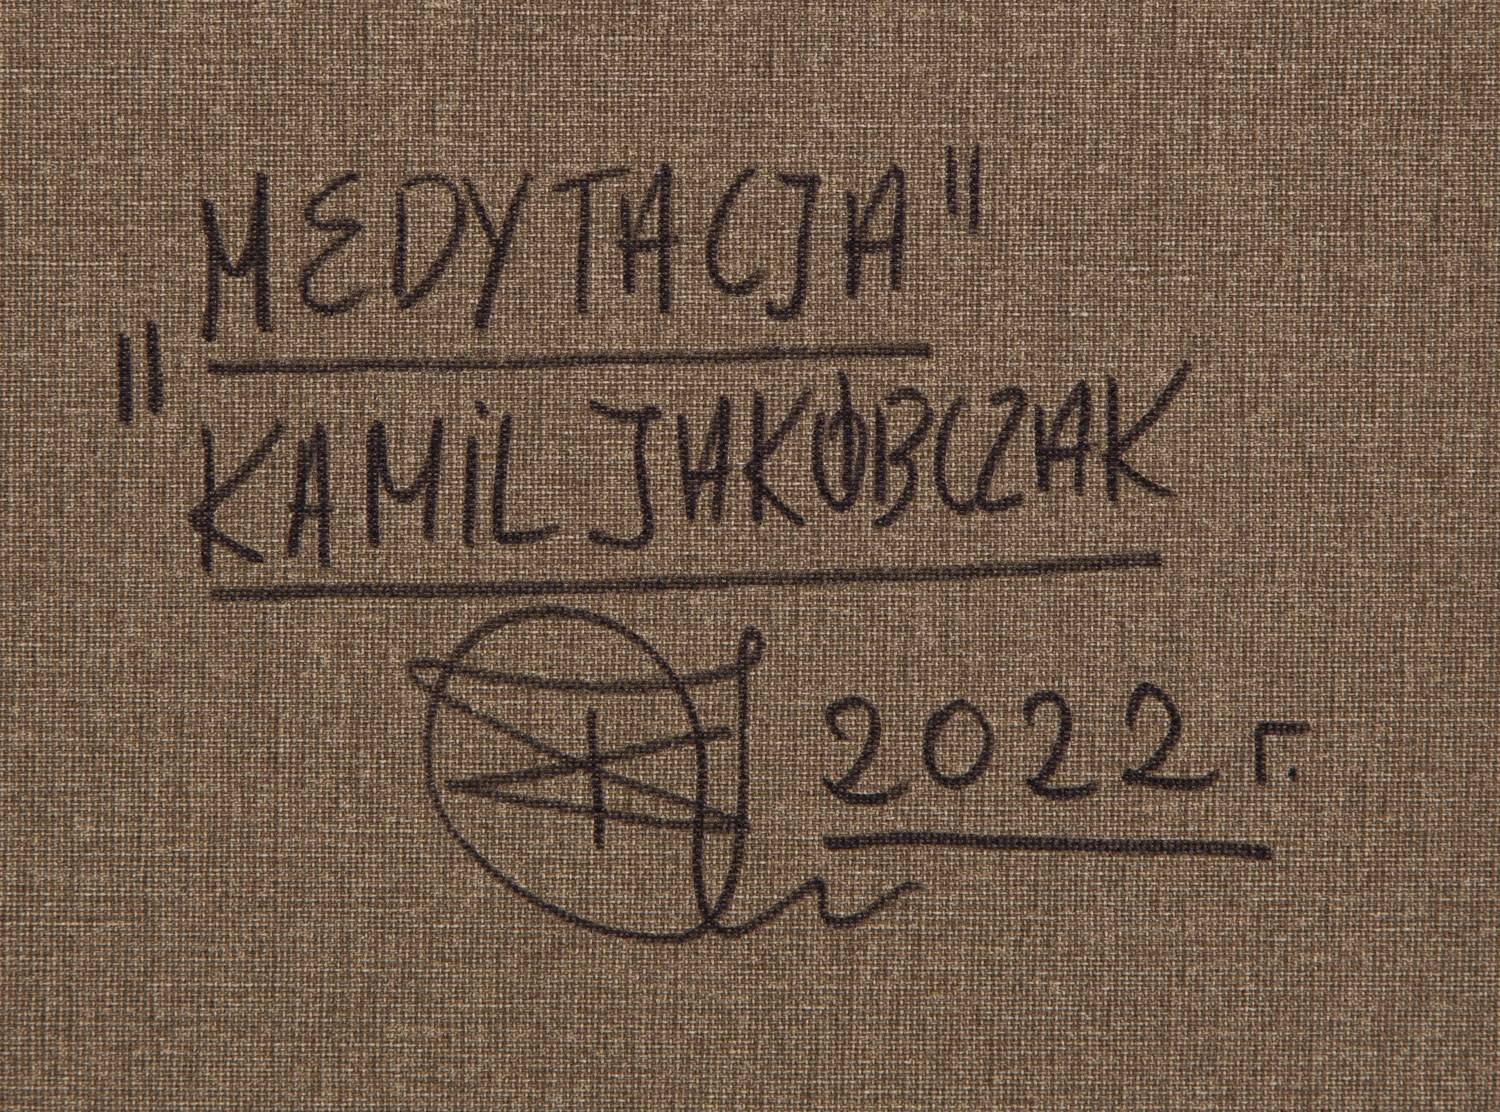 "MEDYTACJA"
KAMiL JAKÓBCZAK
2022 r.